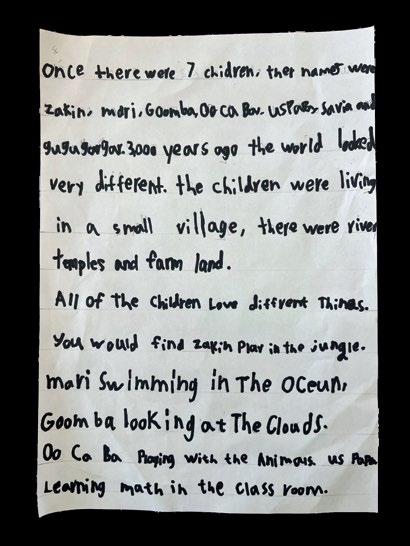 Once there were 7 chidren, ther names were
zakin, mari, Goomba, Oo Ca Ba. us Papa, Savia and
gugugorgor. 3,000 years ago the world looked
very different. the children were living
in a small village, there were river
temples and farm land.
All of the Children Love diffrent Things.
You would find zakin Play in the jungle.
mari Swimming in The Oceun,
Goomba looking at The Clouds.
Oo Ca Ba Playing with the Animals us Papa
Learning math in the class room.